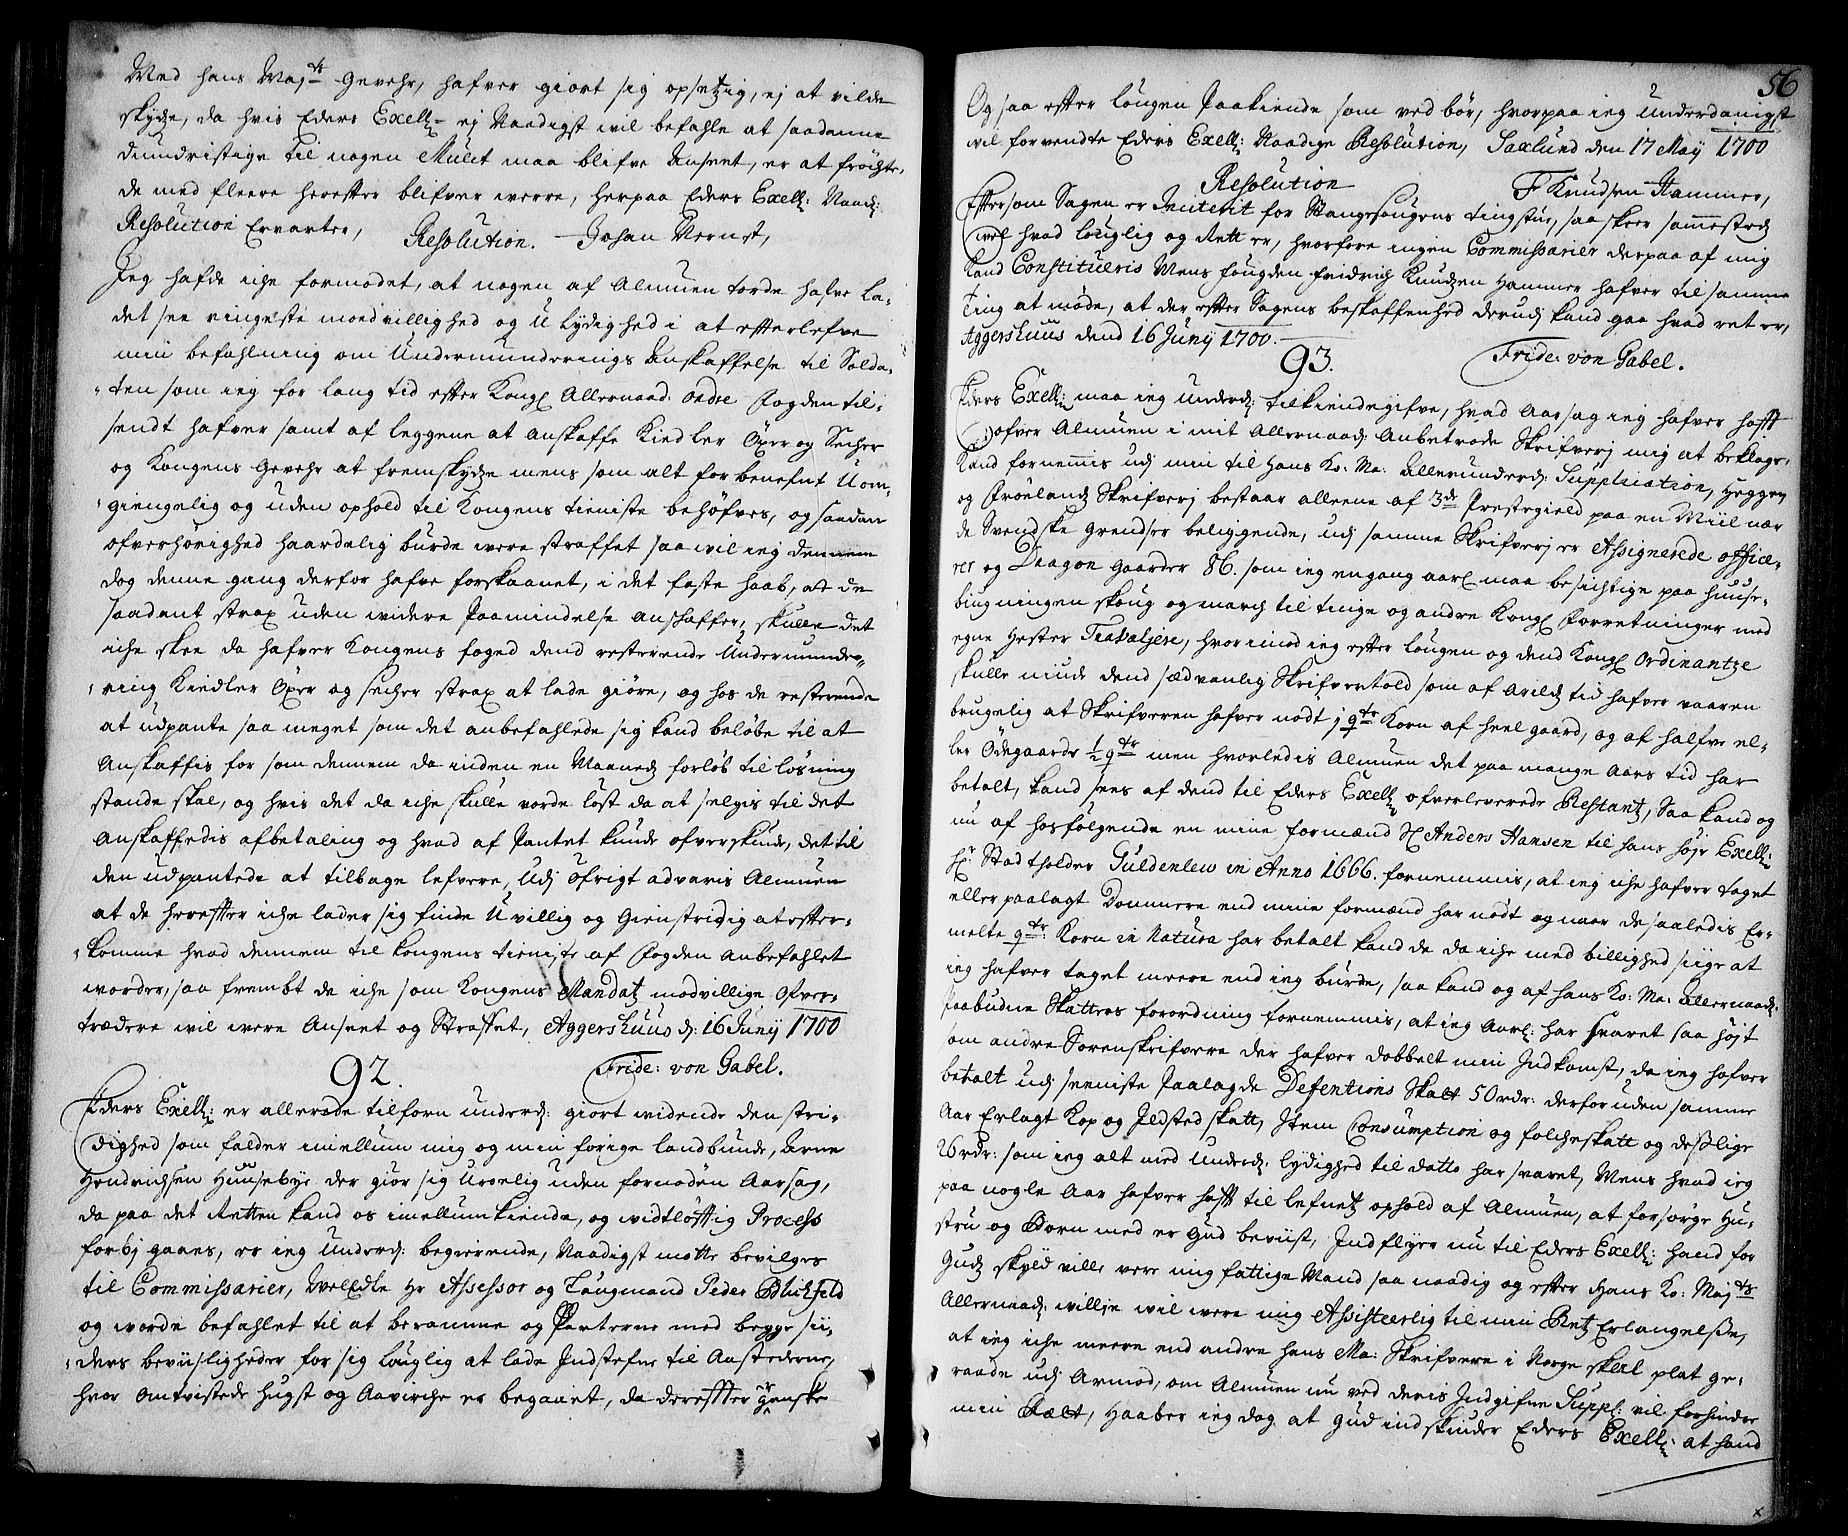 Med hans Maj:ts Gevehr, hafver giort sig opsetzig, ej at vilde
skydze, da hvis Eders Exell: ej Naadigst vil befahle at saadanne
diundristige til nogen Mulct maa blifve anseet, er at fröcte,
de med fleere herefter blifver verre, herpaa Eders Exell: Naad:
Resolution Ervarter,
Johan Vernst,
Resolution.
Jeg hafde iche formodet, at nogen af Almuen torde hafve la-
det see ringeste modvillighed og Ulydighed i at efterlefve
min befahlning om Undermunderings Anskaffelse til Solda-
ten som ieg for lang tid efter Kongl Allernaad: Ordre Fogden til-
sendt hafver samt af leggene at anskaffe Kiedler Öxer og Secher
og Kongens Gevehr at fremskydze mens som alt forbenefnt Uom-
giengelig og uden ophold til Kongens tieniste behöfves, og saadan
ofverhörighed haardelig burde vere straffet saa vil ieg dennem
dog denne gang derfor hafve forskaanet, i det faste haab, at de
saadant strax uden videre Paamindelse anschaffer, skulle det
iche skee da hafver Kongens foged dend resterende Undermunde-
ring Kiedler Öxer og secher strax at lade giöre, og hos de resterende
at udpante saa meget som det anbefahlede sig kand belöbe til at
Anskaffis for som dennem da inden en Maaneds forlöb til lösning
stande skal, og hvis det da iche skulle vorde löst da at selgis til det
Anskaffedis afbetaling og hvad af Pantet kunde ofverskiude, det til
den udpantede at tilbage lefvere, Udj öfrigt advaris Almuen
at de herefter iche lader sig finde Uvillig og Gienstridig at efter-
komme hvad dennem til kongens tieniste af Fogden anbefahlet
vorder, saa frembt de iche som Kongens Mandatz modvillige Ofver-
trædere vil vere Anseet og Straffet, Aggershuus d: 16 Junij 1700
Fride: von Gabel.
92.
Eders Exell: er allerede tilforn underd: giort vidende den stri-
dighed som falder imellum mig og min forige landbunde, Arne
Hendrichsen Huusebye der giör sig Uroelig uden fornöden Aarsag,
da paa det Retten kand os imellum kiende, og vidtlöftig Process
forbj gaaes, er ieg Underd: begierende, Naadigst motte bevilges
til Commissarier, Velædle Hr Assessor og Laugmand Peder Blichfeld
og vorde befahlet til at beramme og Parterne med begge sii-
ders beviisligheder for sig louglig at lade Indstefne til Aastederne,
hvor omtvistede hugst og Aavirche er begaaet, da derefter granske
56
Og saa efter lougen Paakiende som ved bör, hvorpaa ieg underdanigst
vil forvendte Eders Exell: Naadige Resolution, Saxlund den 17 May 1700
F Knudsen Hammer,
Resolution
Eftersom Sagen er Inciterit for Stangesougens tingstue, saa skeer sammesteds
vel hvad louglig og Rett er, hvorfore ingen Commissarier derpaa af mig
kand Constitueris Mens fougden fridrich Knudzen Hammer hafver til samme
ting at möde, at der efter Sagens beskaffenhed derudj kand gaa hvad ret er,
Aggershuus dend 16 Junij 1700.
Fride: von Gabel.
93.
Eders Exell: maa ieg underd: tilkiendegifve, hvad Aarsag ieg hafver hafft
ofver Almuen i mit Allernaad: Anbetrode Skrifverj mig at beklage,
kand fornemmis udj min til Hans Ko: Ma: allerunderd: Supplication, Heggen
og Fröelands Skrifverj bestaar alleene af 3de Prestegield paa en Miil nær
de Svendske grendser beliggende, udj samme Skrifverj er Assignerede office-
rer og Dragon gaarder 86. som ieg engang aarl maa besichtige paa huuse-
bingningen skoug og march til tinge og andre Kongl Forretninger med
egne Hester Travaljere, hvorimod ieg efter lougen og dend Kongl Ordinantze
skulle niude dend sædvanlig Skrifvertold som af Arilds tid hafver vaaren
brugelig at Skrifveren hafver nödt j qtr Korn af heel gaard, og af halfve el-
ler Ödegaarde ½ qtr men hvorledis Almuen det paa mange Aars tid har
betalt, kand sees af dend til Eders Exell ofverleverede Restantz, Saa kand og
nu af hosfölgende en mine formænd Sl Anders Hansen til hans höje Exell:
Hr Stadtholder Guldenlew in Anno 1666. fornemmis, at ieg iche hafver taget
eller paalagt Dommere end mine formænd har nödt og naar de saaledis Er-
melte qtr: Korn in Natura har betalt kand de da iche med billighed siige at
ieg hafver taget meere end ieg burde, saa kand og af hans Ko: Ma: allernaad:
paabudne Skatters forordning fornemmis, at ieg Aarl: har svaret saa höjt
som andre Sorenskrifvere der hafver dobbelt min Indkomst, da ieg hafver
betalt udj seeniste Paalagde Defentions Skatt 50 rdr: derforuden samme
Aar Erlagt Kop og Ildsted skatt, Item Consumption og folcheskatt og deslige
26 rdr: som ieg alt med Underd: lydighed til datto har svaret, Mens hvad ieg
paa nogle Aar hafver hafft til lefnets ophold af Almuen, at forsörge Hu-
stru og Born med er Gud beviist, Indflyer nu til Eders Exell: hand for
Guds skyld ville vere mig fattige Mand saa naadig og efter Hans Ko: Maj:ts
Allernaad: willje wil were mig Assisteerlig til min Retz Erlangelsse,
at ieg iche meere end andre hans Ma: Skrifvere i Norge skal plat ge-
raade udj Armod, om Almuen nu ved deris Indgifne Suppl: vil forhindre
min Rætt, Haaber ieg dog at Gud indskiuder Eders Exell: at hand